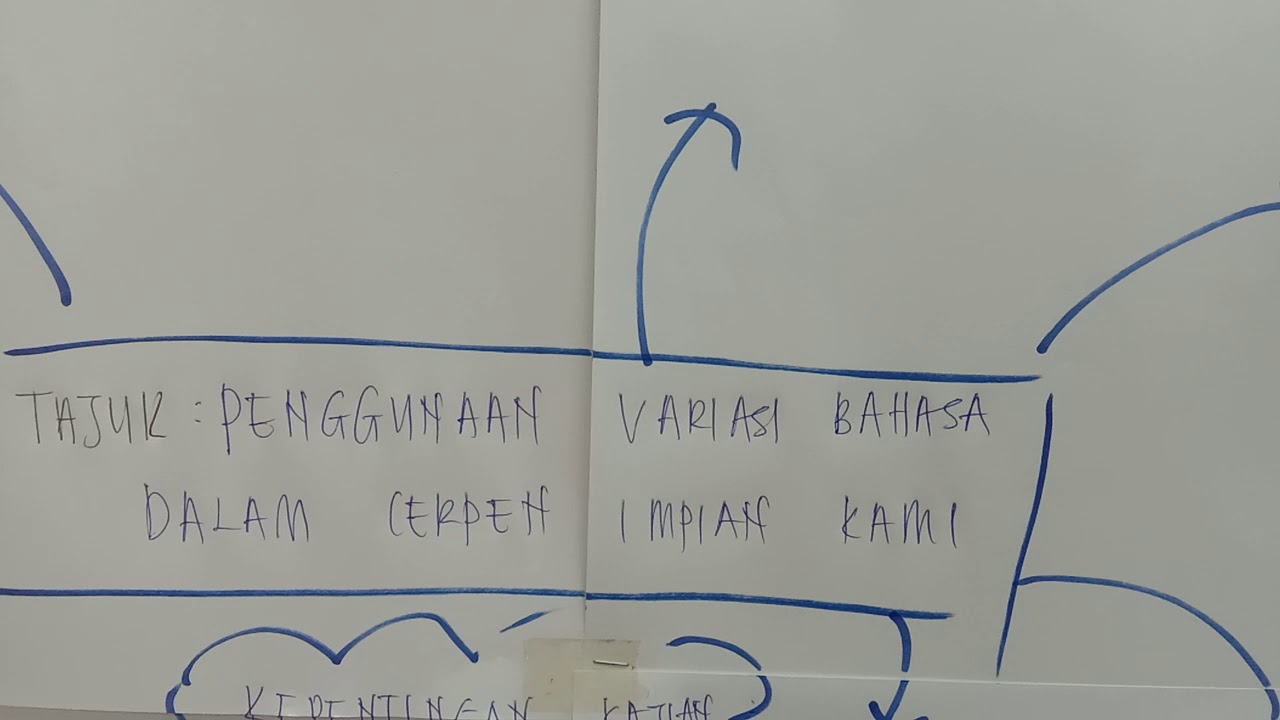 TAJUK : PENGGUNAAN VARIASI BAHASA
DALAM CERPEN IMPIAN KAMI
KEPENTINGAN KAJIAN